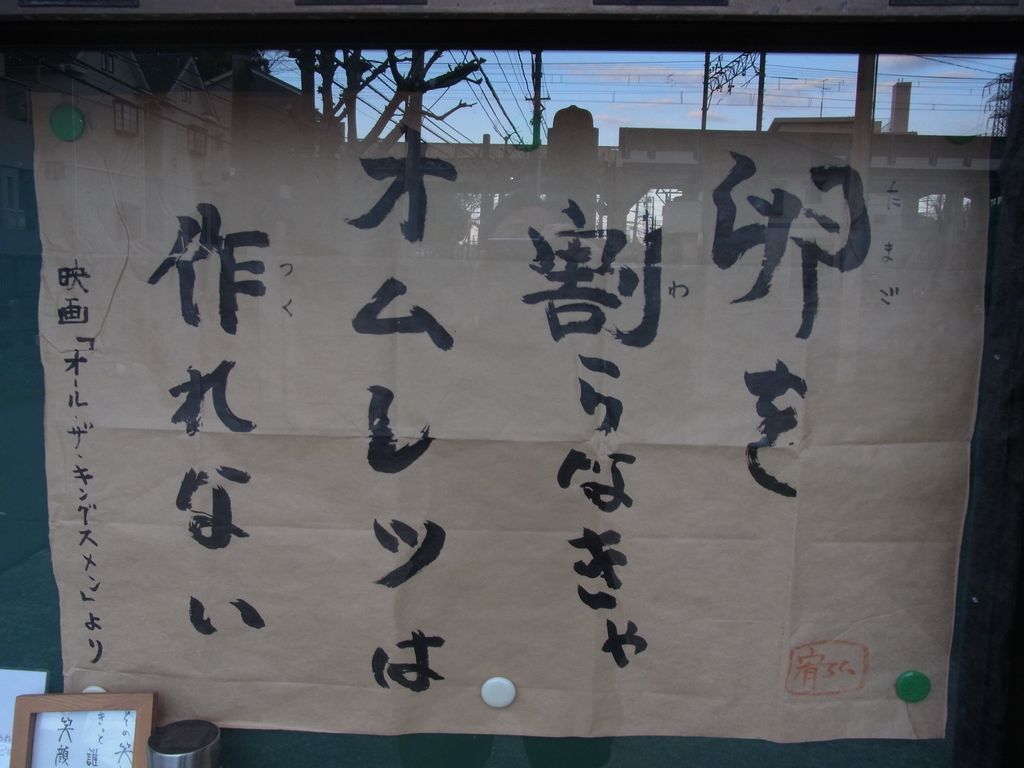 卵を
たまご
割らなきゃ
わ
オムレツは
作れない
つく
映画「オール・ザ・キングスメン」より
その笑
きっと誰
笑顔